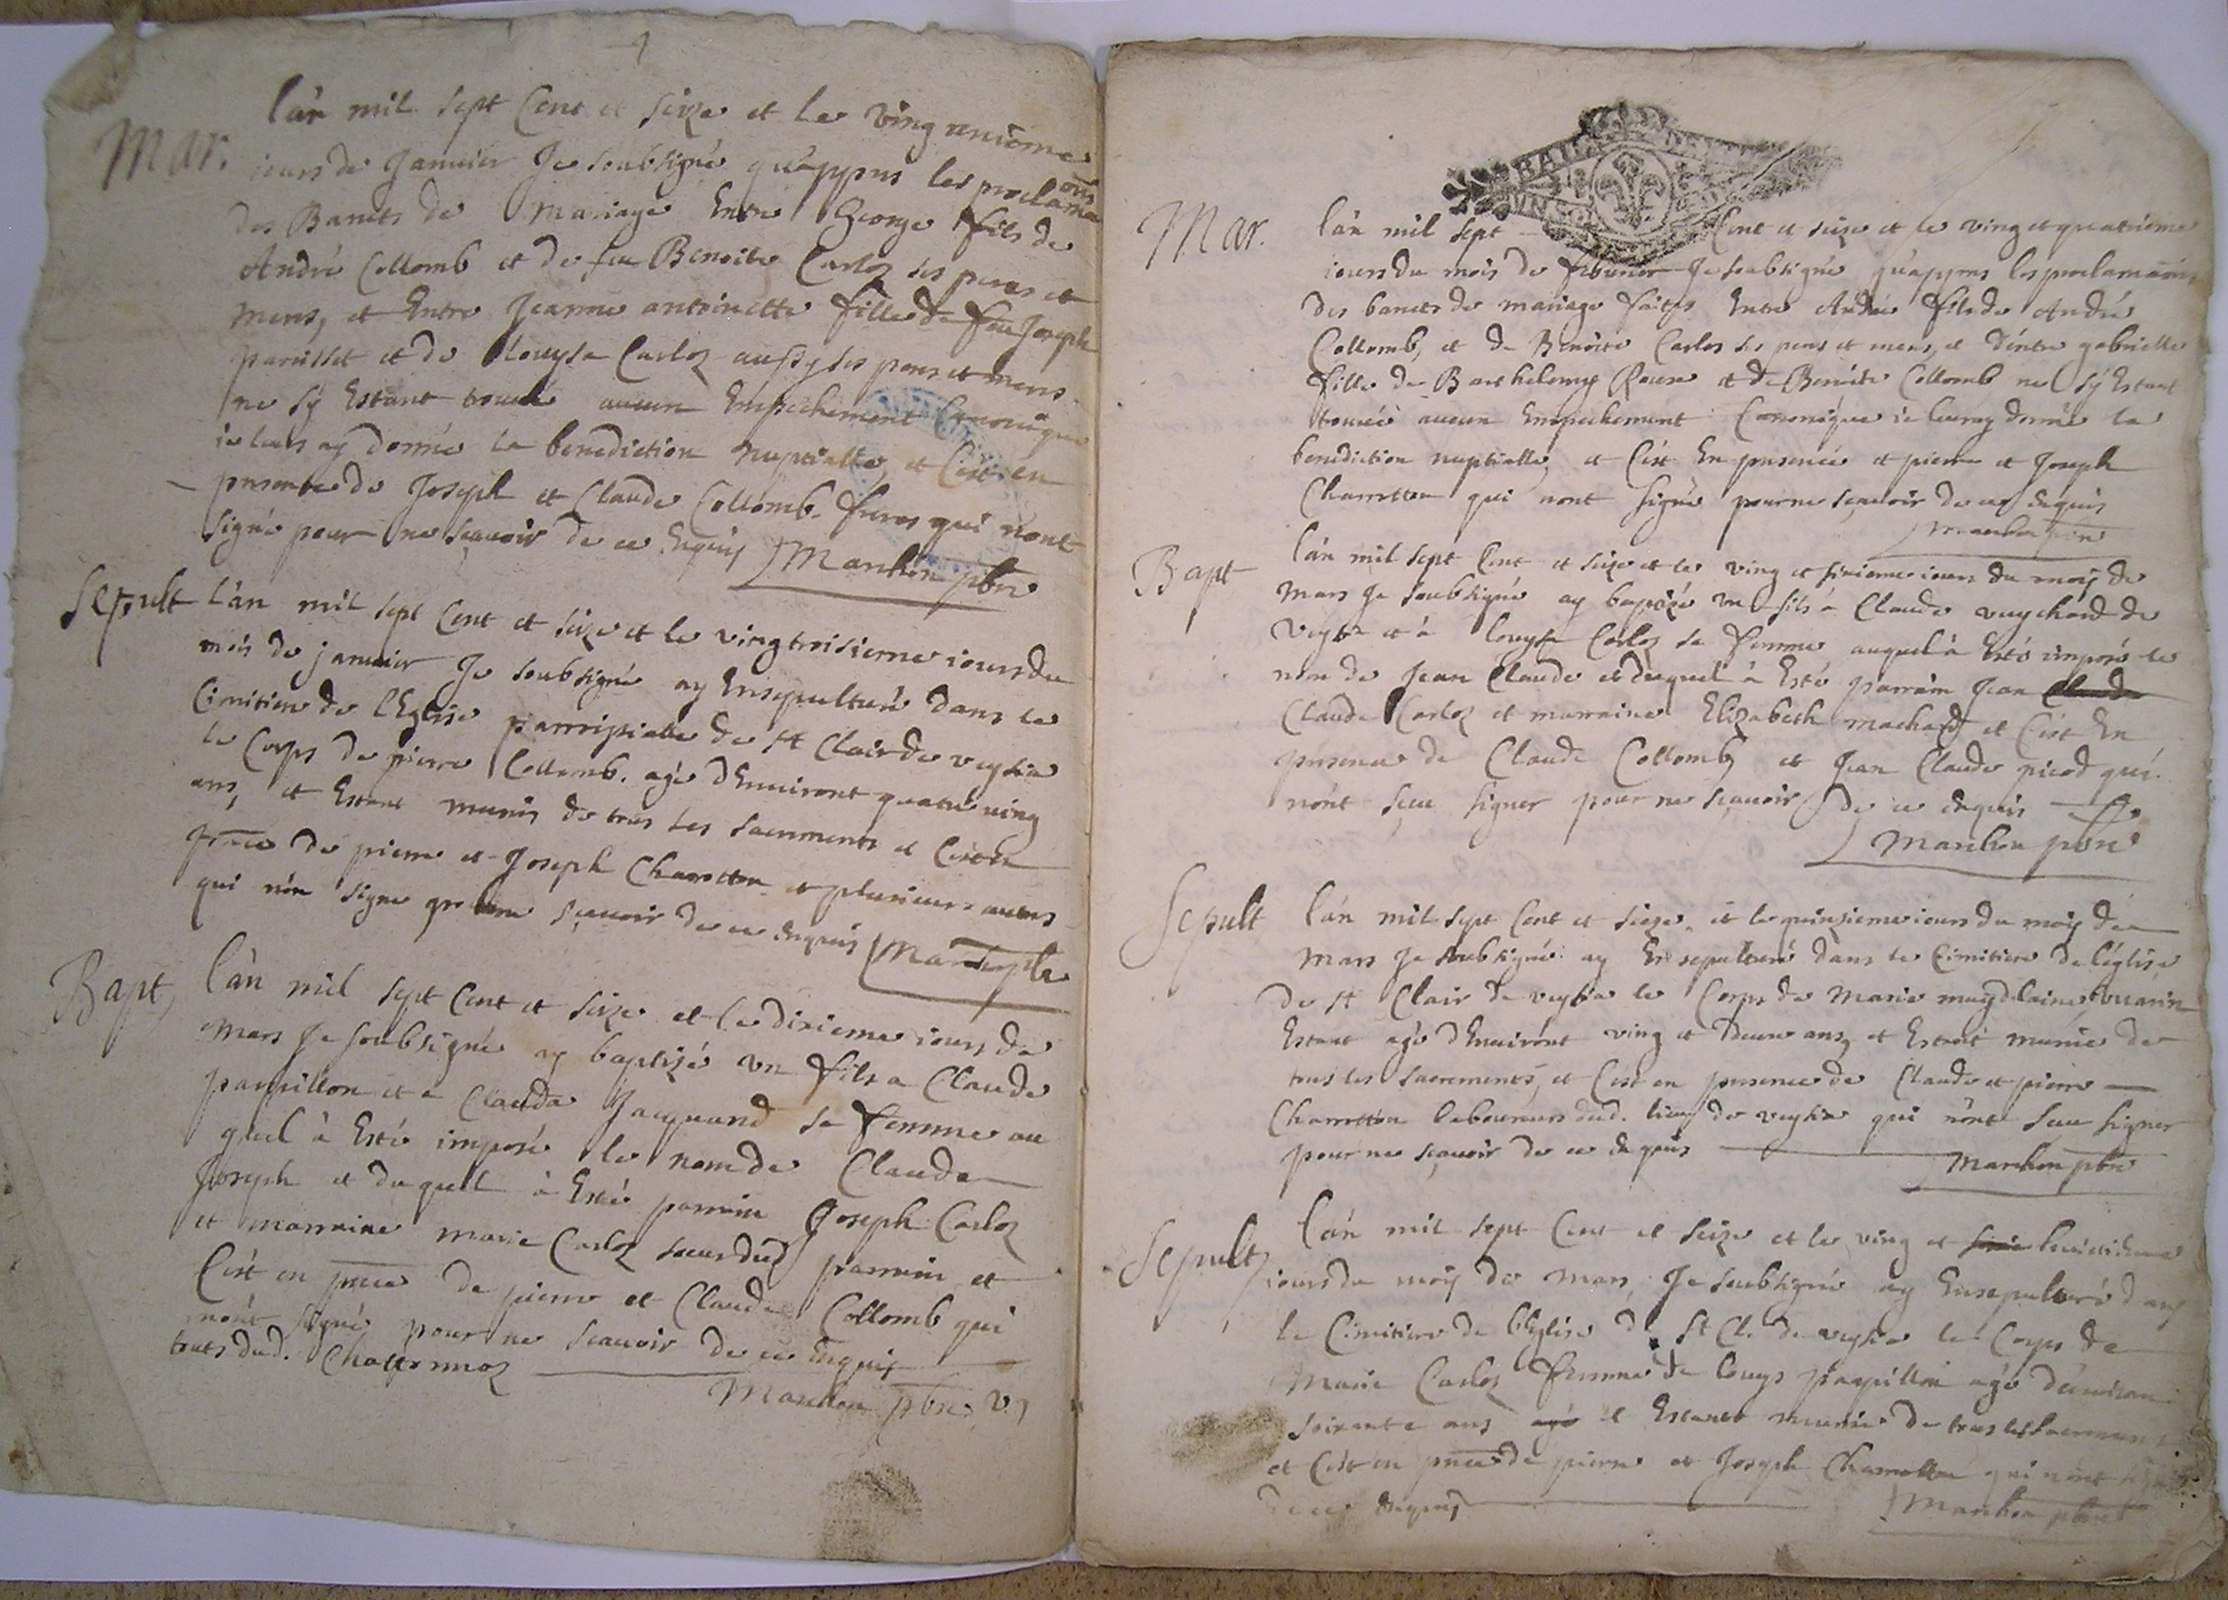 Mar.
l'an mil sept Cent et seize et le ving uniême
iours de Januier Je soubsigné qu'appres les proclama
ons
des Bancts de Mariage Entre George fils de
André Collomb et de feu Benoite Carloz ses peres et
meres, et Entre Jeanne antoinette fille de feu Joseph
et de Louyse Carloz aussy ses peres et meres
ne sy Estant trouué aucun Empechement Canonique
ie leurs ay donné la benediction nuptialle, et C'est en
presence de Joseph et Claude Collomb freres qui n'ont
signé pour ne sçauoir de ce Enquis Marchon pbre
Sepult
l'an mil sept Cent et seize et le ving troisieme iours du
mois de januier Je soubsigné ay Ensepulturé dans le
Cimitiere de l'Eglise de St Clair de veytia
le Corps de pierre Collomb. agé d'Enuiront quatre ving
ans, et Estant munis de tous les sacrments et C'est en
pnce de pierre et Joseph Charrotton et plusieurs autres
qui n'on signe sçauoir de ce Enquis Marchon pbre
Bapt,
l'an mil sept Cent et seize et le dixieme iours de
Mars Je soubsigné ay baptizé vn fils a Claude
pappillon et a Clauda Jacquand sa femme au
quel à Esté imposé le nom de Claude
Joseph et du quel à Esté parrain Joseph Carloz
et marraine marie Carloz soeur dud parrain et
C'est en pnce de pierre et Claude Collomb qui
n'ont signé pour ne sçauoir de ce Enquis
touts dud. Chattonnaz
Marchon pbre
Mar.
l'an mil sept Cent et seize et le ving et quatrieme
iours du mois de feburier Je soubsigné qu'appres les proclamaons
des bancts de mariage faites Entre André fils de André
Collomb, et de Benoite Carloz ses peres et meres, et d'entre gabrielle
fille de Barthelemy et de Benoite Collomb ne sy Estant
trouué aucun Empechement Canonique ie leur ay donné la
benediction nuptialle, et C'est En presence et pierre et Joseph
Charrotton qui nont signé pour ne sçauoir de ce Enquis
Marchon pbre
Bapt
l'an mil sept Cent et seize et le ving et sixieme iours du moy de
Mars Je soubsigné ay baptizé vn fils à Claude vuychard de
veytia et à louyse Carloz sa femme auquel à Esté imposé le
nom de Jean Claude et duquel à Esté parrain Jean Claude
Claude Carloz et marraine Elizabeth machard et C'est En
presence de Claude Collomb et Jean Claude picod qui
n'ont sceu signer pour ne sçauoir de ce Enquis
Marchon pbre
Sepult
l'an mil sept Cent et sieze et le quinzieme iours du moy de
Mars Je soubsigné ay Ensepulturé dans le Cimitiere de l'église
de St Clair de veytia le Corps de Marie magdlaine vuarin
Estant agé d'Enuiront ving et deux ans, et Estant munie de
tous les sacrements, et C'est en presence de Claude et pierre
Charrotton laboureurs dud. lieu de veytia qui n'ont sceu signer
pour ne sçauoir de ce Enquis
Marchon pbre
Sepult,
l'an mil sept Cent et seize et le ving et huictieme
iours du moy de Mars, Je soubsigné ay Ensepulturé dans
le Cimitiere de l'Eglise de St Cl. de veytia le Corps de
Marie Carloz femme de Louys pappillon agé d'enuiron
soixante ans agé et Estant munie de tous les sacrements
et C'est en pnce de pierre et Joseph Charrotton qui nont signé
de ce Enquis
Marchon pbre